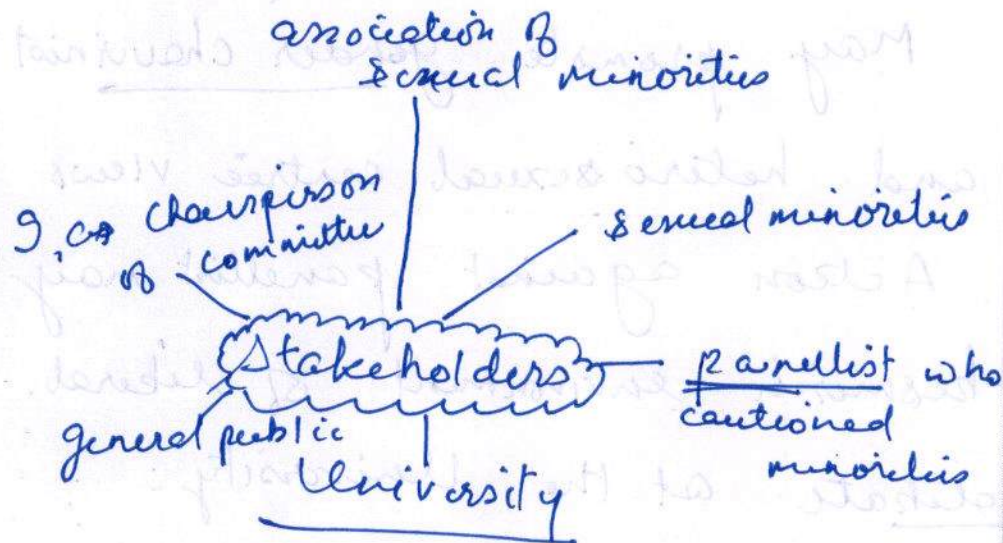 association of
sexual minorities
I, as Chairperson
of committee
sexual minorities
Stakeholders
panellist who
cautioned
minorities
general public
University